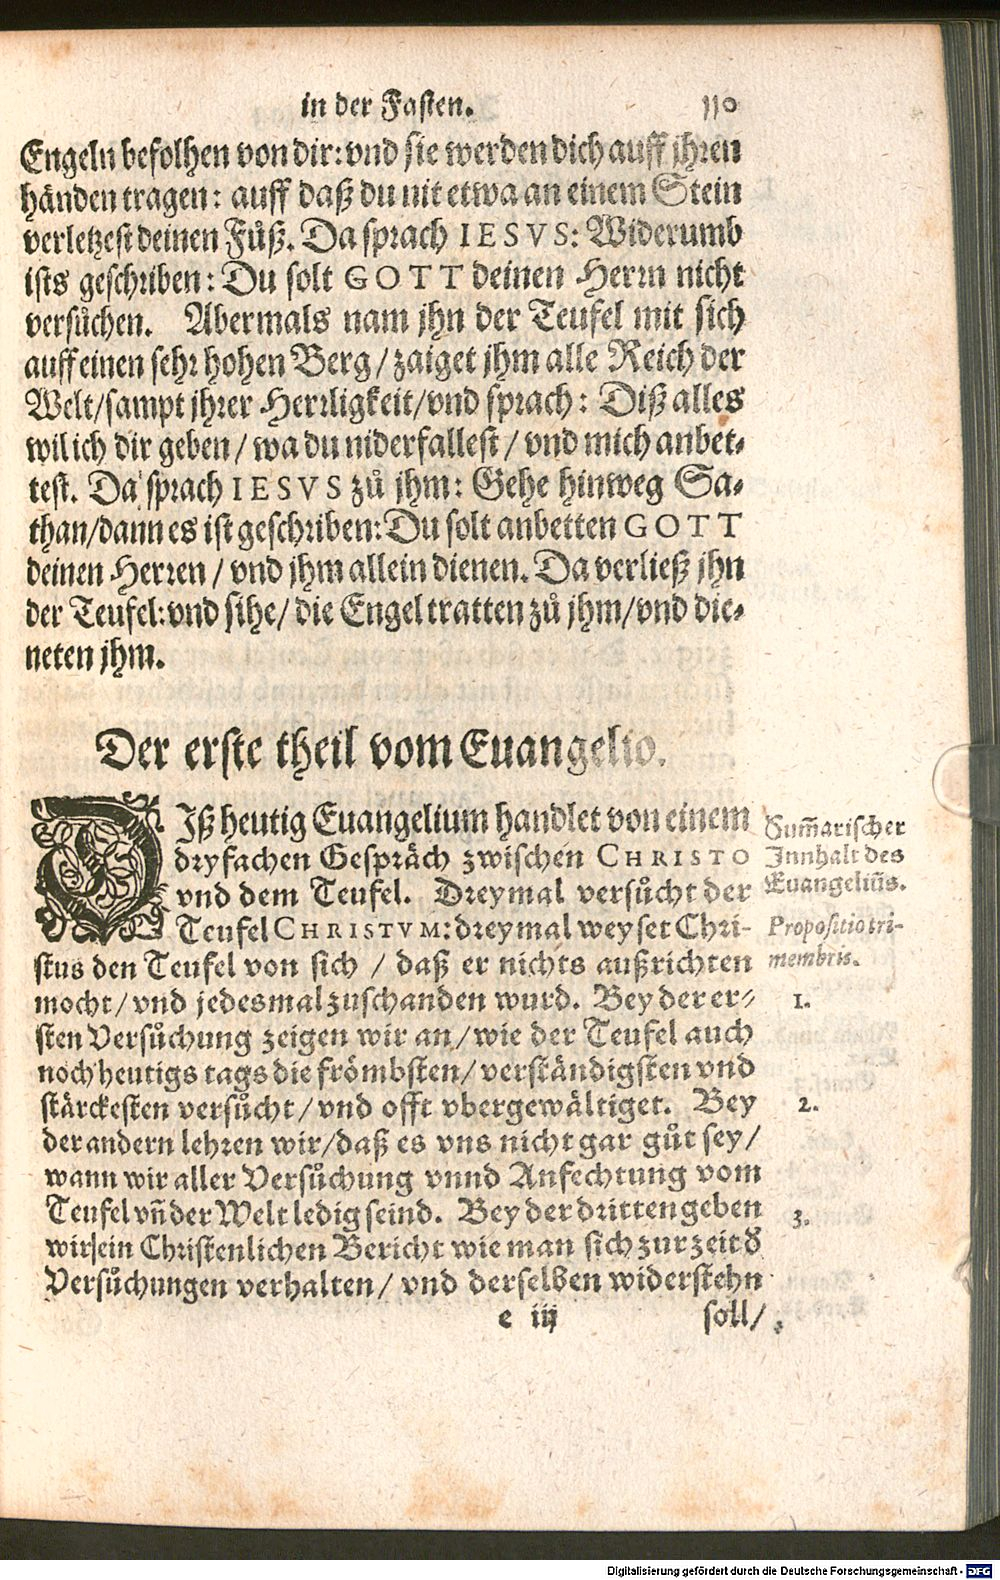 in der Fasten. 110
Engeln befolhen von dir: vnd sie werden dich auff jhren
händen tragen: auff daß du nit etwa an einem Stein
verletzest deinen Fůß. Da sprach IESVS: Widerumb
ists geschriben: Du solt GOTT deinen Herrn nicht
versůchen. Abermals nam jhn der Teufel mit sich
auff einen sehr hohen Berg / zaiget jhm alle Reich der
Welt/sampt jhrer Herrligkeit/vnd sprach: Diß alles
wil ich dir geben / wa du niderfallest / vnd mich anbet⸗
test. Da sprach IESVS zů jhm: Gehe hinweg Sa⸗
than/dann es ist geschriben: Du solt anbetten GOTT
deinen Herren / vnd jhm allein dienen. Da verließ jhn
der Teufel: vnd sihe/ die Engel tratten zů jhm/vnd die⸗
neten jhm.
Der erste theil vom Euangelio.
DIß heutig Euangelium handlet von einem
dryfachen Gespräch zwischen CHRISTO
vnd dem Teufel. Dreymal versůcht der
Teufel CHRISTVM: dreymal weyset Chri-
stus den Teufel von sich / daß er nichts außrichten
mocht/ vnd jedesmal zuschanden wurd. Bey der er⸗
sten Versůchung zeigen wir an/ wie der Teufel auch
noch heutigs tags die frömbsten/ verständigsten vnd
stärckesten versůcht / vnd offt vbergewältiget. Bey
der andern lehren wir/daß es vns nicht gar gůt sey/
wann wir aller Versůchung vnnd Anfechtung vom
Teufel vñ der Welt ledig seind. Bey der dritten geben
wir ein Christenlichen Bericht wie man sich zur zeit d̕
Versůchungen verhalten/ vnd derselben widerstehn
e iij soll/
Sum̃arischer
Innhalt des
Euangeliũs.
Propositio tri-
membris.
1.
2.
3.
Digitalisierung gefördert durch die Deutsche Forschungsgemeinschaft - DFG